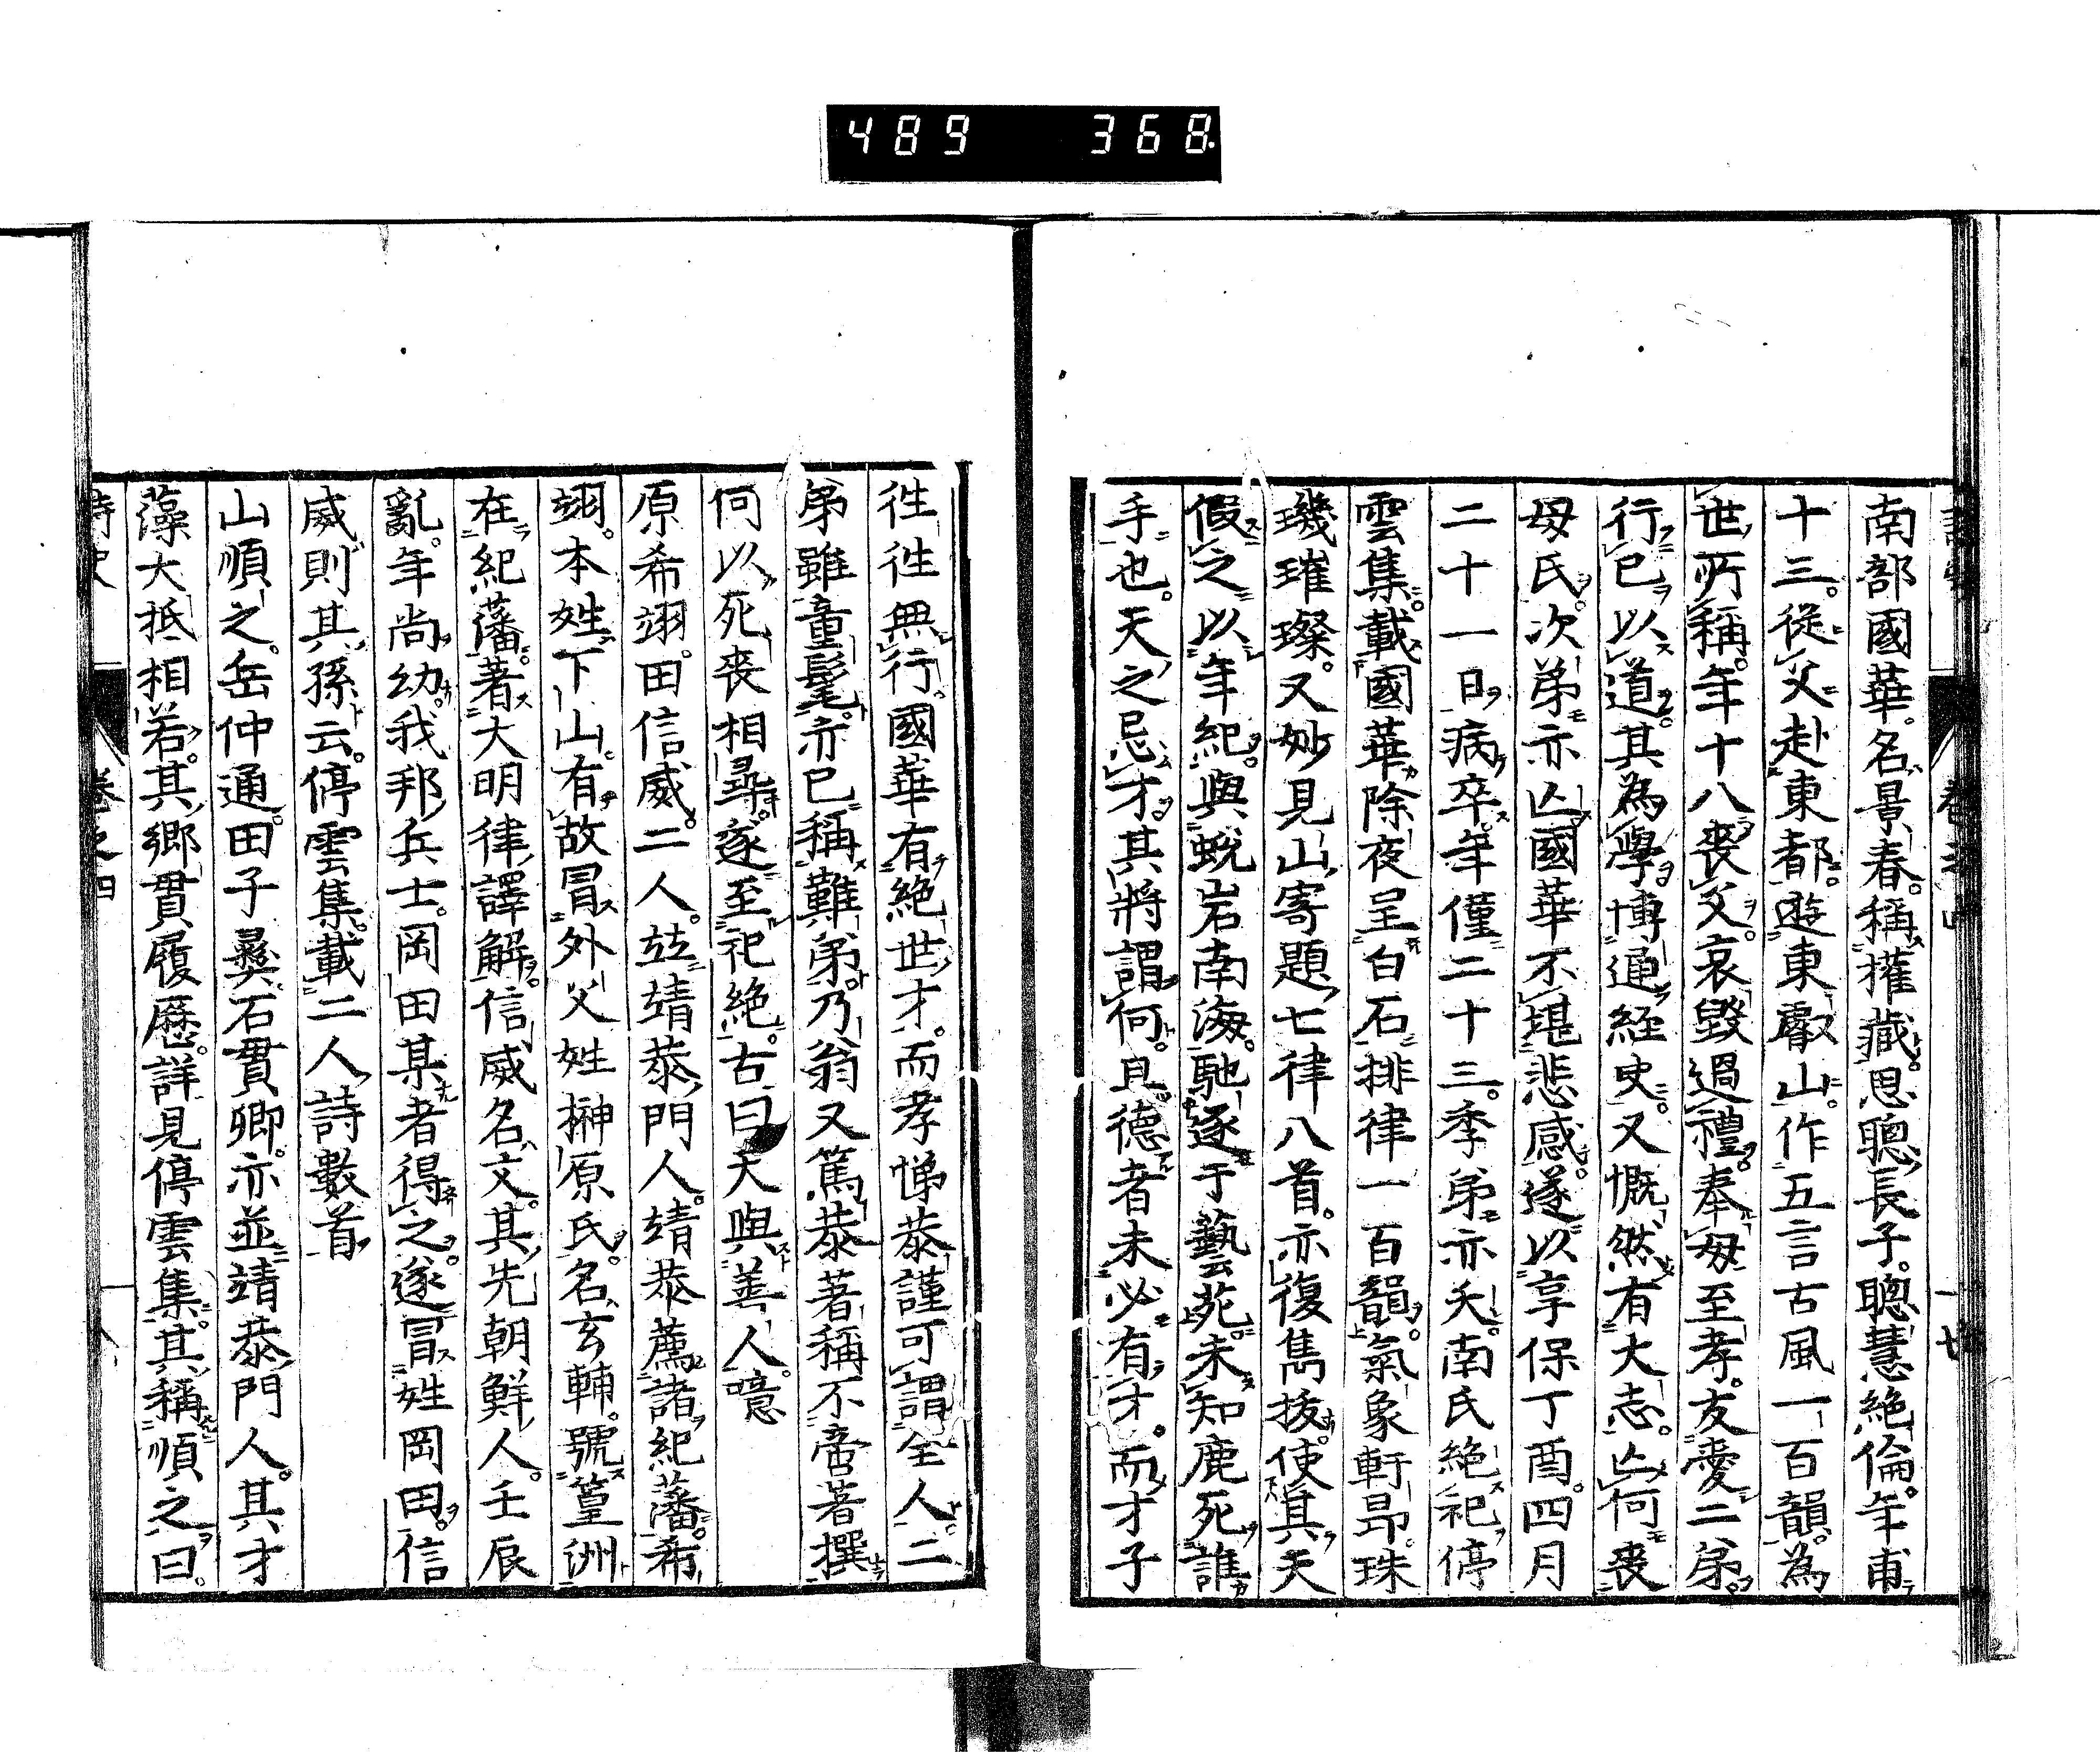 489 368
南部國華。名景春。稱權藏。思聰長子。聰慧絶倫。年甫
十三。從父赴東都。遊東叡山。作五言古風一百韻。為
世所稱。年十八喪父。哀毀過禮。奉母至孝。友愛二弟。
行已以道。其為學博通経史。又慨然有大志。亾何喪
母氏。次弟亦亾。國華不堪悲感。遂以享保丁酉。四月
二十一日病卒。年僅二十三。季弟亦夭。南氏絶祀。停
雲集。載國華除夜呈白石排律一百韻。氣象軒昻。珠
璣璀璨。又妙見山寄題七律八首。亦復雋拔。使其天
假之以年紀。與蛻岩南海。馳逐于藝苑。未知鹿死誰
手也。天之忌才。其將謂何。且德者未必有才。而才子
徃徃無行。國華有絶世才。而孝悌恭謹可謂全人。二
弟雖童髦。亦已稱難弟。乃翁又篤恭著稱。不啻著撰
何以死喪相尋。遂至祀絶。古曰天與善人。噫
原希翊。田信威。二人。竝靖恭門人。靖恭薦諸紀藩。希
翊。本姓下山。有故冒外父姓榊原氏。名玄輔。號篁洲
在紀藩。著大明律譯解。信威名文。其先朝鮮人。壬辰
亂。年尚幼。我邦兵士。岡田某者得之。遂冒姓岡田。信
威則其孫云。停雲集。載二人詩數首
山順之。岳仲通。田子彝。石貫卿。亦並靖恭門人。其才
藻大抵相若。其鄉貫履歷。詳見停雲集。其稱順之曰。
詩史
卷之四